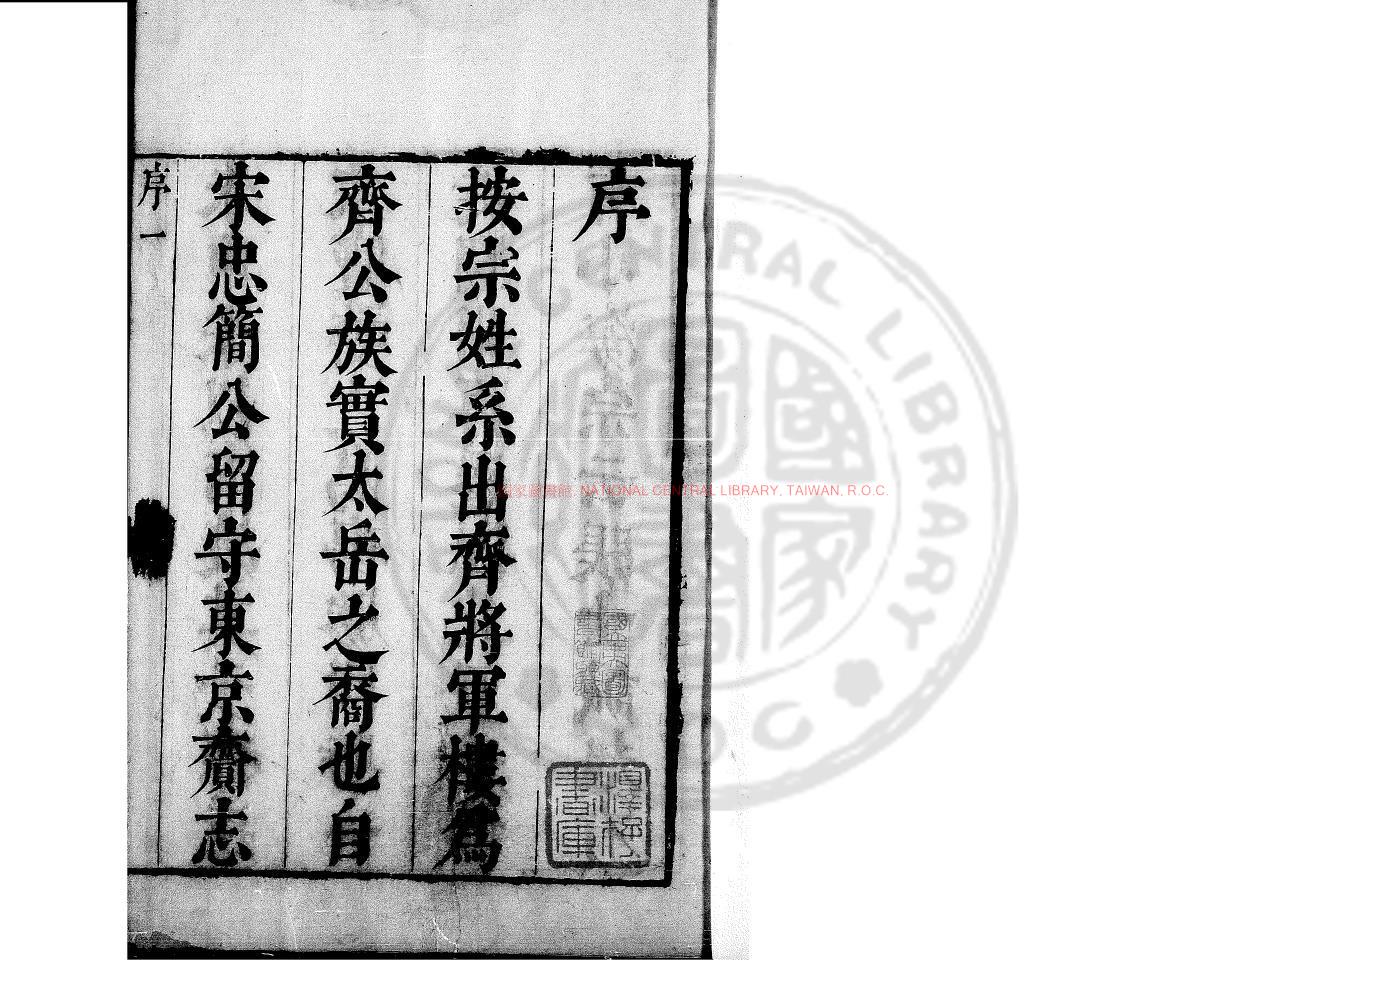 序
按宗姓系出齊將軍樓爲
齊公族實太岳之裔也自
宋忠簡公留守東京齎志
序
一
NATIONAL CENTRAL LIBRARY, TAIWAN, R.O.C.
CENTRAL LIBRARY